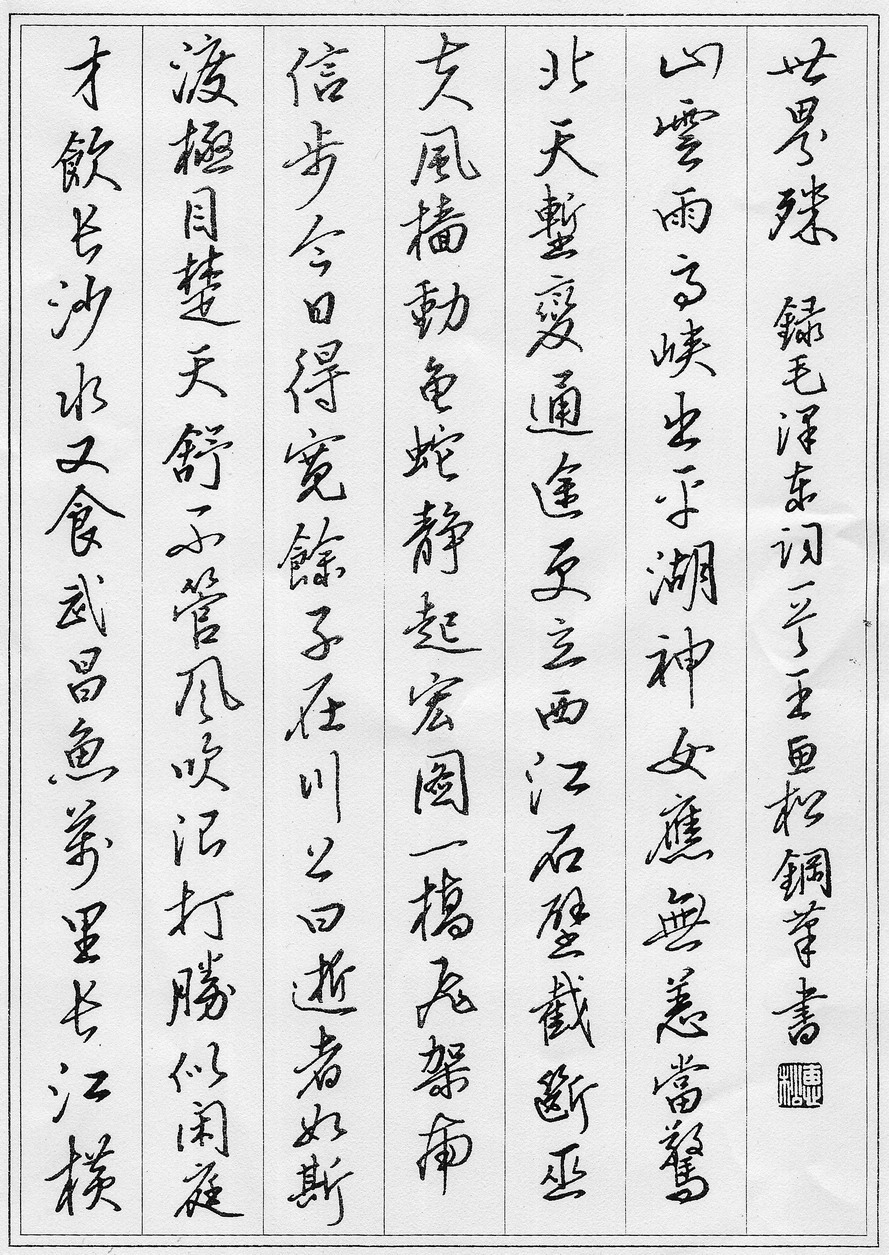 才飲长沙水又食武昌魚萬里长江横
渡極目楚天舒不管风吹浪打勝似闲庭
信步今日得寬餘子在川上曰逝者如斯
夫風檣動龟蛇静起宏图一橋飛架南
北天塹變通途更立西江石壁截斷巫
山雲雨高峡出平湖神女應無恙當驚
世界殊 録毛泽东词一首王惠松鋼筆書
惠松